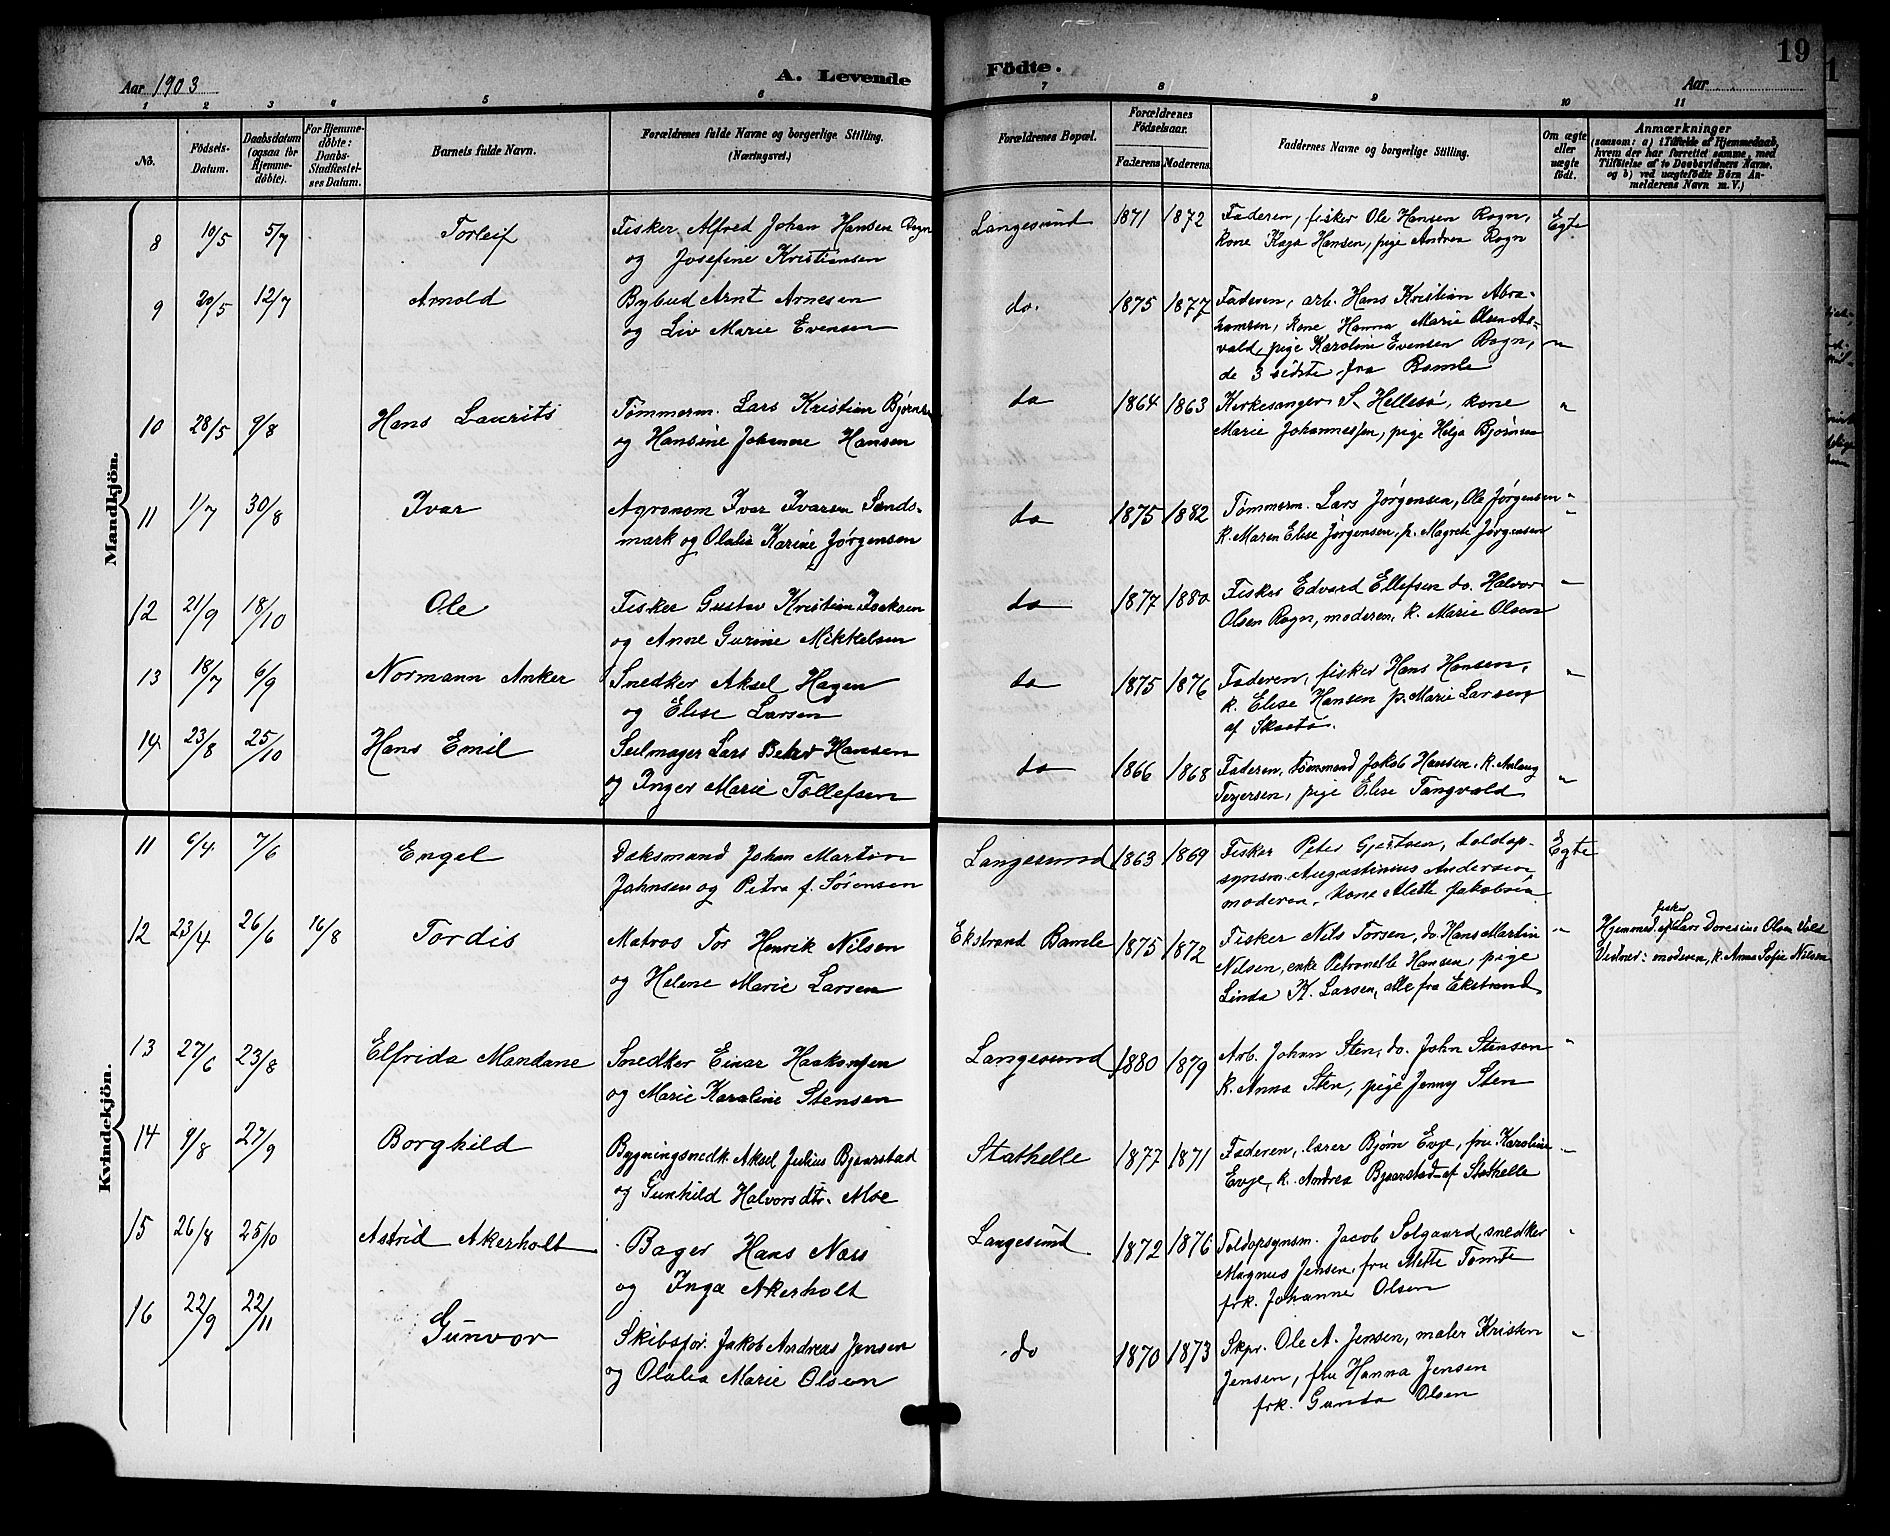 Aar 1903
A. Levende
Födte.
Aar
19
1 2 3 4 5 6 7 8 9 10 11
No. | Födsels-Datum. | Daabsdatum (ogsaa for Hjemmedöbte). | For Hjemmedöbte: Daabs-Stadfestelses Datum. | Barnets fulde Navn. | Forældrenes fulde Navne og borgerlige Stilling. (Næringsvei.) | Forældrenes Bopæl. | Forældrenes Födselsaar. Faderens. Moderens. | Faddernes Navne og borgerlige Stilling. | Om ægte eller uægte født. | Anmærkninger (saasom: a) i Tilfælde af Hjemmedaab, hvem der har forrettet samme, med Tilföielse af to Daabsvidners Navne. og b) ved uægtefödte Börn Anmelderens Navn m. V.)
Mandkjön.
8 10/5 5/7 Torleif Fisker Alfred Johan Hansen Rogn Langesund 1871 1872 Faderen, fisker Ole Hansen Rogn, Egte
og Josefine Kristiansen kone Kaja Hansen, pige Andrea Rogn
9 20/5 12/7 Arnold Bybud Arnt Arnesen do. 1875 1877 Faderen, arb. Hans Kristian Abra-
og Liv Marie Evensen hamsen, kone Hanna Marie Olsen As-
vald, pige Karoline Evensen Rogn, "
de 3 sidste fra Bamle
10 28/5 9/8 Hans Laurits Tømmerm. Lars Kristian Bjørnsen do 1864 1863 Kirkesanger S. Hellesø, kone "
og Hansine Johanne Hansen Marie Johannessen, pige Helga Bjørnsen
11 1/7 30/8 Ivar Agronom Ivar Ivarsen Sands- do 1875 1882 Tømmerm. Lars Jørgensen, Ole Jørgensen "
mark og Olalia Karine Jørgensen k. Maren Elise Jørgensen, p. Magrete Jørgensen "
12 21/9 18/10 Ole Fisker Gustav Kristian Isaksen do 1877 1880 Fisker Edvard Ellefsen do. Halvor "
og Anne Gurine Mikkelsen Olsen Rogn, moderen, k. Marie Olsen
13 18/7 6/9 Normann Anker Snedker Aksel Hagen do 1875 1876 Faderen, fisker Hans Hansen, "
og Elise Larsen k. Elise Hansen p. Marie Larsen,
af Skaatø.
14 23/8 25/10 Hans Emil Seilmager Lars Peter Hansen do 1866 1868 Faderen, tømmermd Jakob Hansen, k. Aslaug "
og Inger Marie Tollefsen Terjersen, pige Elise Tangvald
Kvindekjön.
11 6/4 7/6 Engel Dæksmand Johan Martin Langesund 1863 1869 Fisker Peter Gjertsen, toldop- Egte
Jahnsen og Petra f. Sørensen synsm. Augustinius Andersen,
moderen, kone Alette Jakobsen
12 23/4 26/6 16/8 Tordis Matros Tor Henrik Nilsen Ekstrand Bamle 1875 1872 Fisker Nils Torsen, do. Hans Martin " Hjemmed. af fisker Lars Doresius Olsen Vold
og Helene Marie Larsen Nilsen, enke Petronelle Hansen, pige Vidner: moderen, k. Anna Sofie Nilsen
Linda K. Larsen, alle fra Ekstrand.
13 27/6 23/8 Elfrida Mandane Snedker Einar Haakonsen Langesund 1880 1879 Arb. Johan Sten, do. John Stensen "
og Marie Karoline Stensen k. Anna Sten, pige Jenny Sten
14 9/8 27/9 Borghild Bygningsnedk. Aksel Julius Bjaarstad Stathelle 1877 1871 Faderen, lærer Bjørn Evje, fru Karoline "
og Gunhild Halvorsdtr. Moe Evje, k. Andrea Bjaarstad af Stathelle
15 26/8 25/10 Astrid Akerholt Bager Hans Næss Langesund 1872 1876 Toldopsynsm. Jacob Solgaard, snedker "
og Inga Akerholt Magnus Jensen, fru Mette Tomte
frk. Johanne Olsen
16 22/9 22/11 Gunvor Skibsfør. Jakob Andreas Jensen do 1870 1873 Skpr. Ole A. Jensen, maler Kristen "
og Olalia Marie Olsen Jensen, fru Hanna Jensen
frk. Gunda Olsen